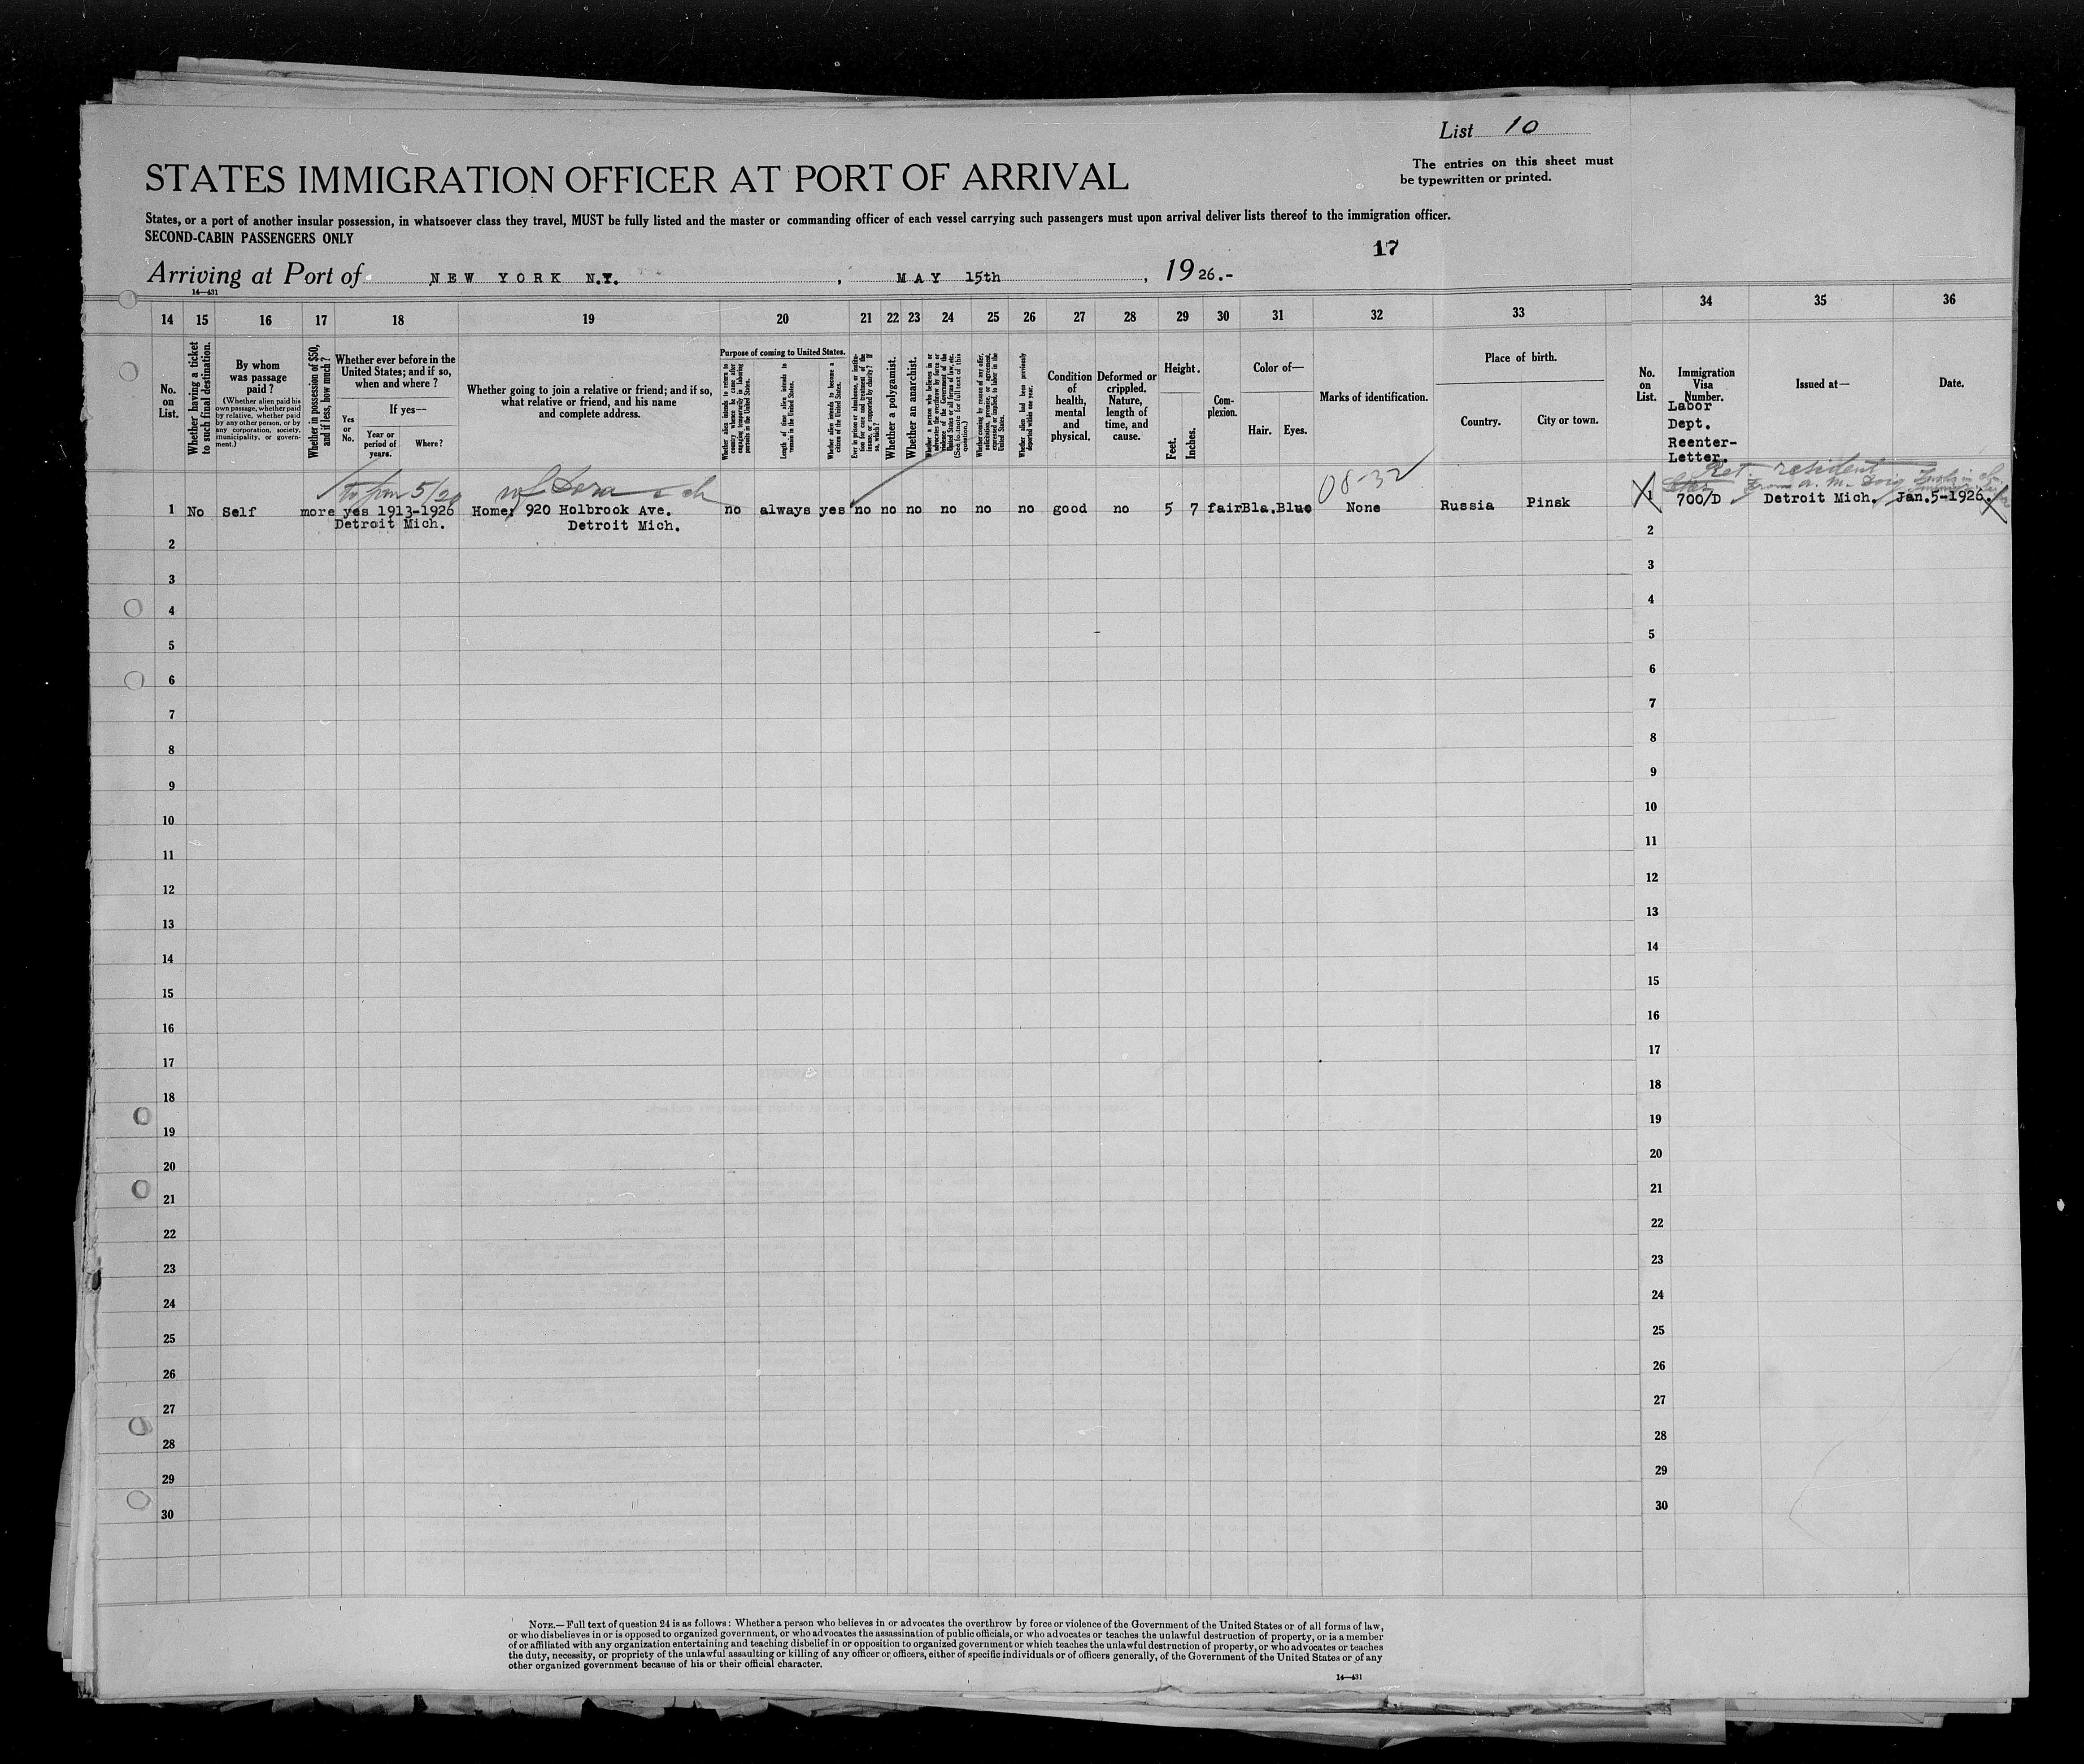 List 10
The entries on this sheet must
be typewritten or printed.
STATES IMMIGRATION OFFICER AT PORT OF ARRIVAL
States, or a port of another insular possession, in whatsoever class they travel, MUST be fully listed and the master or commanding officer of each vessel carrying such passengers must upon arrival deliver lists thereof to the immigration officer.
SECOND-CABIN PASSENGERS ONLY
17
Arriving at Port of NEW YORK N.Y. , MAY 15th , 1926.-
14—431
14 15 16 17 18 19 20 21 22 23 24 25 26 27 28 29 30 31 32 33 34 35 36
No.
on
List.
Whether having a ticket
to such final destination.
By whom
was passage
paid?
(Whether alien paid his
own passage, whether paid
by relative, whether paid
by any other person, or by
any corporation, society,
municipality, or govern-
ment.)
Whether in possession of $50,
and if less, how much?
Whether ever before in the
United States; and if so,
when and where?
Yes
or
No.
If yes—
Year or
period of
years.
Where?
Whether going to join a relative or friend; and if so,
what relative or friend, and his name
and complete address.
Purpose of coming to United States.
Whether alien intends to return to
country whence he came after
engaging temporarily in laboring
pursuits in the United States.
Length of time alien intends to
remain in the United States.
Whether alien intends to become a
citizen of the United States.
Ever in prison or almshouse, or institu-
tion for care and treatment of the
insane, or supported by charity? If
so, which?
Whether a polygamist.
Whether an anarchist.
Whether a person who believes in or
advocates the overthrow by force or
violence of the Government of the
United States or all forms of law, etc.
(See footnote for full text of this
question.)
Whether coming by reason of any offer,
solicitation, promise, or agreement,
expressed or implied, to labor in the
United States.
Whether alien had been previously
deported within one year.
Condition
of
health,
mental
and
physical.
Deformed or
crippled.
Nature,
length of
time, and
cause.
Height.
Feet.
Inches.
Com-
plexion.
Color of—
Hair. Eyes.
Marks of identification.
Place of birth.
Country. City or town.
No.
on
List.
Immigration
Visa
Number.
Labor
Dept.
Reenter-
Letter.
Issued at—
Date.
5/20
08-32
Ret. resident
1 No Self more yes 1913-1926 Home; 920 Holbrook Ave. no always yes no no no no no no good no 5 7 fair Bla. Blue None Russia Pinsk 1 700/D Detroit Mich. Jan.5-1926.
Detroit Mich. Detroit Mich.
2 2
3 3
4 4
5 5
6 6
7 7
8 8
9 9
10 10
11 11
12 12
13 13
14 14
15 15
16 16
17 17
18 18
19 19
20 20
21 21
22 22
23 23
24 24
25 25
26 26
27 27
28 28
29 29
30 30
NOTE.—Full text of question 24 is as follows: Whether a person who believes in or advocates the overthrow by force or violence of the Government of the United States or of all forms of law,
or who disbelieves in or is opposed to organized government, or who advocates the assassination of public officials, or who advocates or teaches the unlawful destruction of property, or is a member
of or affiliated with any organization entertaining and teaching disbelief in or opposition to organized government or which teaches the unlawful destruction of property, or who advocates or teaches
the duty, necessity, or propriety of the unlawful assaulting or killing of any officer or officers, either of specific individuals or of officers generally, of the Government of the United States or of any
other organized government because of his or their official character.
14—431